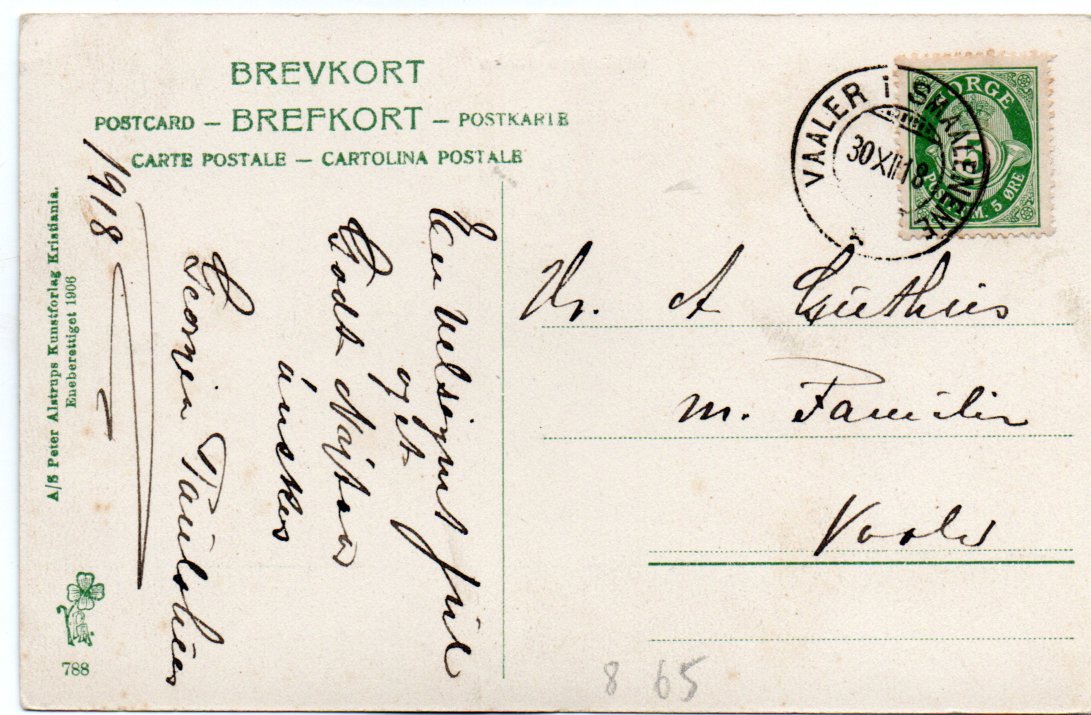 BREVKORT
POSTCARD – BREFKORT – POSTKARTE
CARTE POSTALE – CARTOLINA POSTALE
VAALER i SMAALENENE
30 XII 18
NORGE
POSTFRIM. 5 ØRE
1918
En velsignet jul
og et
Godt Nytaar
ønskes
A/S Peter Alstrups Kunstforlag Kristiania.
Eneberettiget 1906
788
Hr. A
m. Familie
Vaaler
8 65